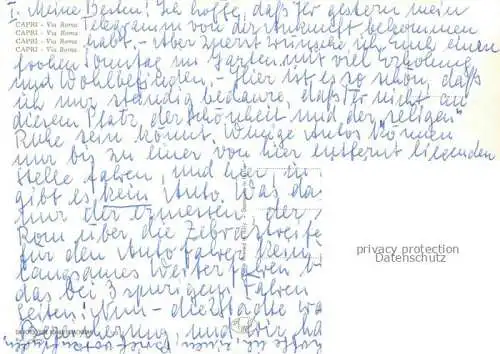 I. Meine Besten! Ich hoffe, daß Ihr gestern mein
Telegramm von der Ankunft bekommen
habt. - Aber zuerst wünsche ich Euch einen
frohen Sonntag im Garten mit viel Erholung
und Wohlbefinden, - Hier ist es so schön, daß
ich nur ständig bedaure, daß Ihr nicht an
diesem Platz, der Schönheit und der "seligen"
Ruhe sein könnt. Wenige Autos können
nur bis zu einer von hier entfernt liegenden
Stelle fahren, und hier in
gibt es kein Auto. Was da
nur der ermessen, der
Rom über die Zebrastreife
für den Autofahrer kein
langsames Weiterfahren b
das bei 3 spurigem Fahren
seiten! Nun - die Städte wa
und wir ha
CAPRI - Via Roma
CAPRI - Via Roma
CAPRI - Via Roma
CAPRI - Via Roma
privacy protection
Datenschutz